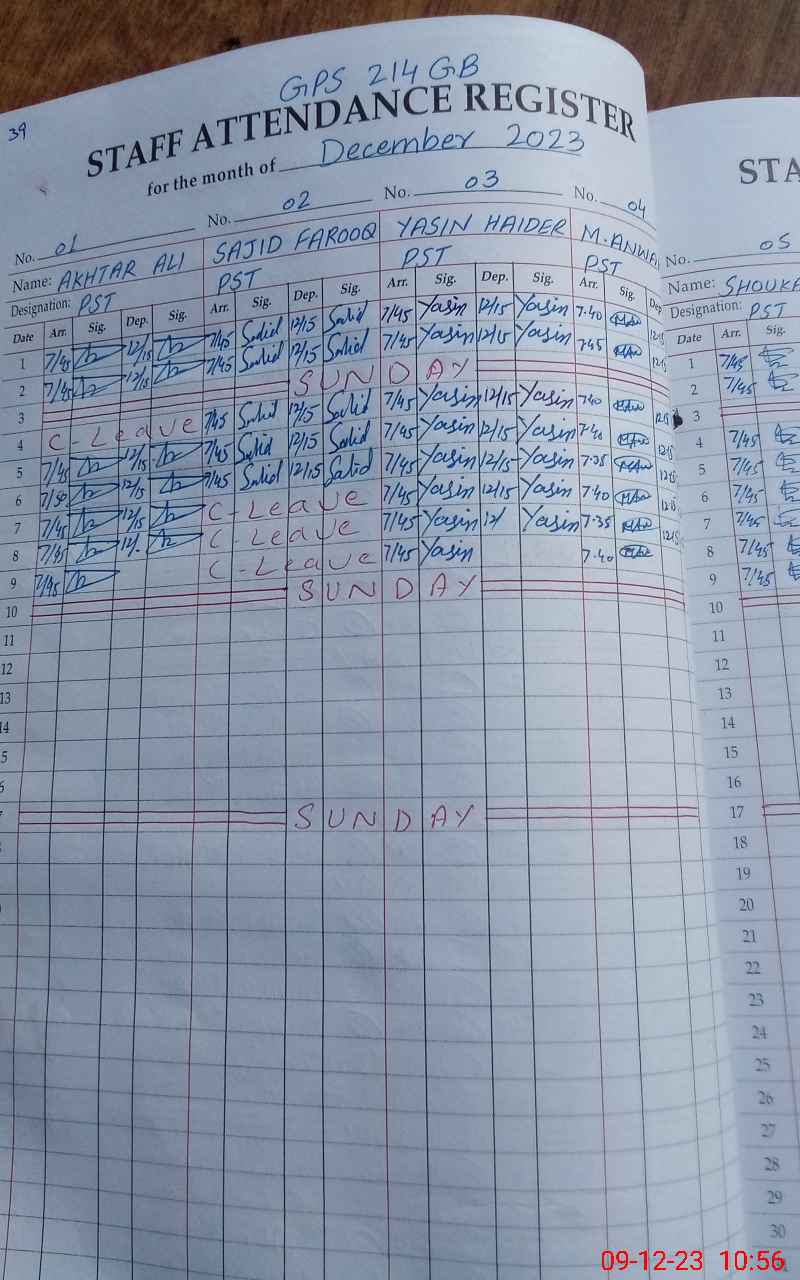 39
GPS 214 GB
STAFF ATTENDANCE REGISTER
for the month of December 2023
No. 01 No. 02 No. 03 No. 04
Name: AKHTAR ALI SAJID FAROOQ YASIN HAIDER M.ANWA
Designation: PST PST PST PST
Date Arr. Sig. Dep. Sig. Arr. Sig. Dep. Sig. Arr. Sig. Dep. Sig. Arr. Sig. Dep
1 7/45 12/15 7/45 Sajid 12/15 Sajid 7/45 Yasin 12/15 Yasin 7.40 12.15
2 7/45 12/15 7/45 Sajid 12/15 Sajid 7/45 Yasin 12/15 Yasin 7.45 12.15
3 SUNDAY
4 C-Leave 7/45 Sajid 12/15 Sajid 7/45 Yasin 12/15 Yasin 7.40 12.15
5 7/45 12/15 7/45 Sajid 12/15 Sajid 7/45 Yasin 12/15 Yasin 7.40 12.15
6 7/50 12/15 7/45 Sajid 12/15 Sajid 7/45 Yasin 12/15 Yasin 7.35 12.15
7 7/45 12/15 C-Leave 7/45 Yasin 12/15 Yasin 7.40 12.15
8 7/45 12/. C-Leave 7/45 Yasin 12/ Yasin 7.35 12.15
9 7/45 C-Leave 7/45 Yasin 7.40
10 SUNDAY
11
12
13
14
5
6
SUNDAY
STA
No. 05
Name: SHOUKA
Designation: PST
Date Arr. Sig.
1 7/45
2 7/45
3
4 7/45
5 7/45
6 7/45
7 7/45
8 7/45
9 7/45
10
11
12
13
14
15
16
17
18
19
20
21
22
23
24
25
26
27
28
29
30
09-12-23 10:56